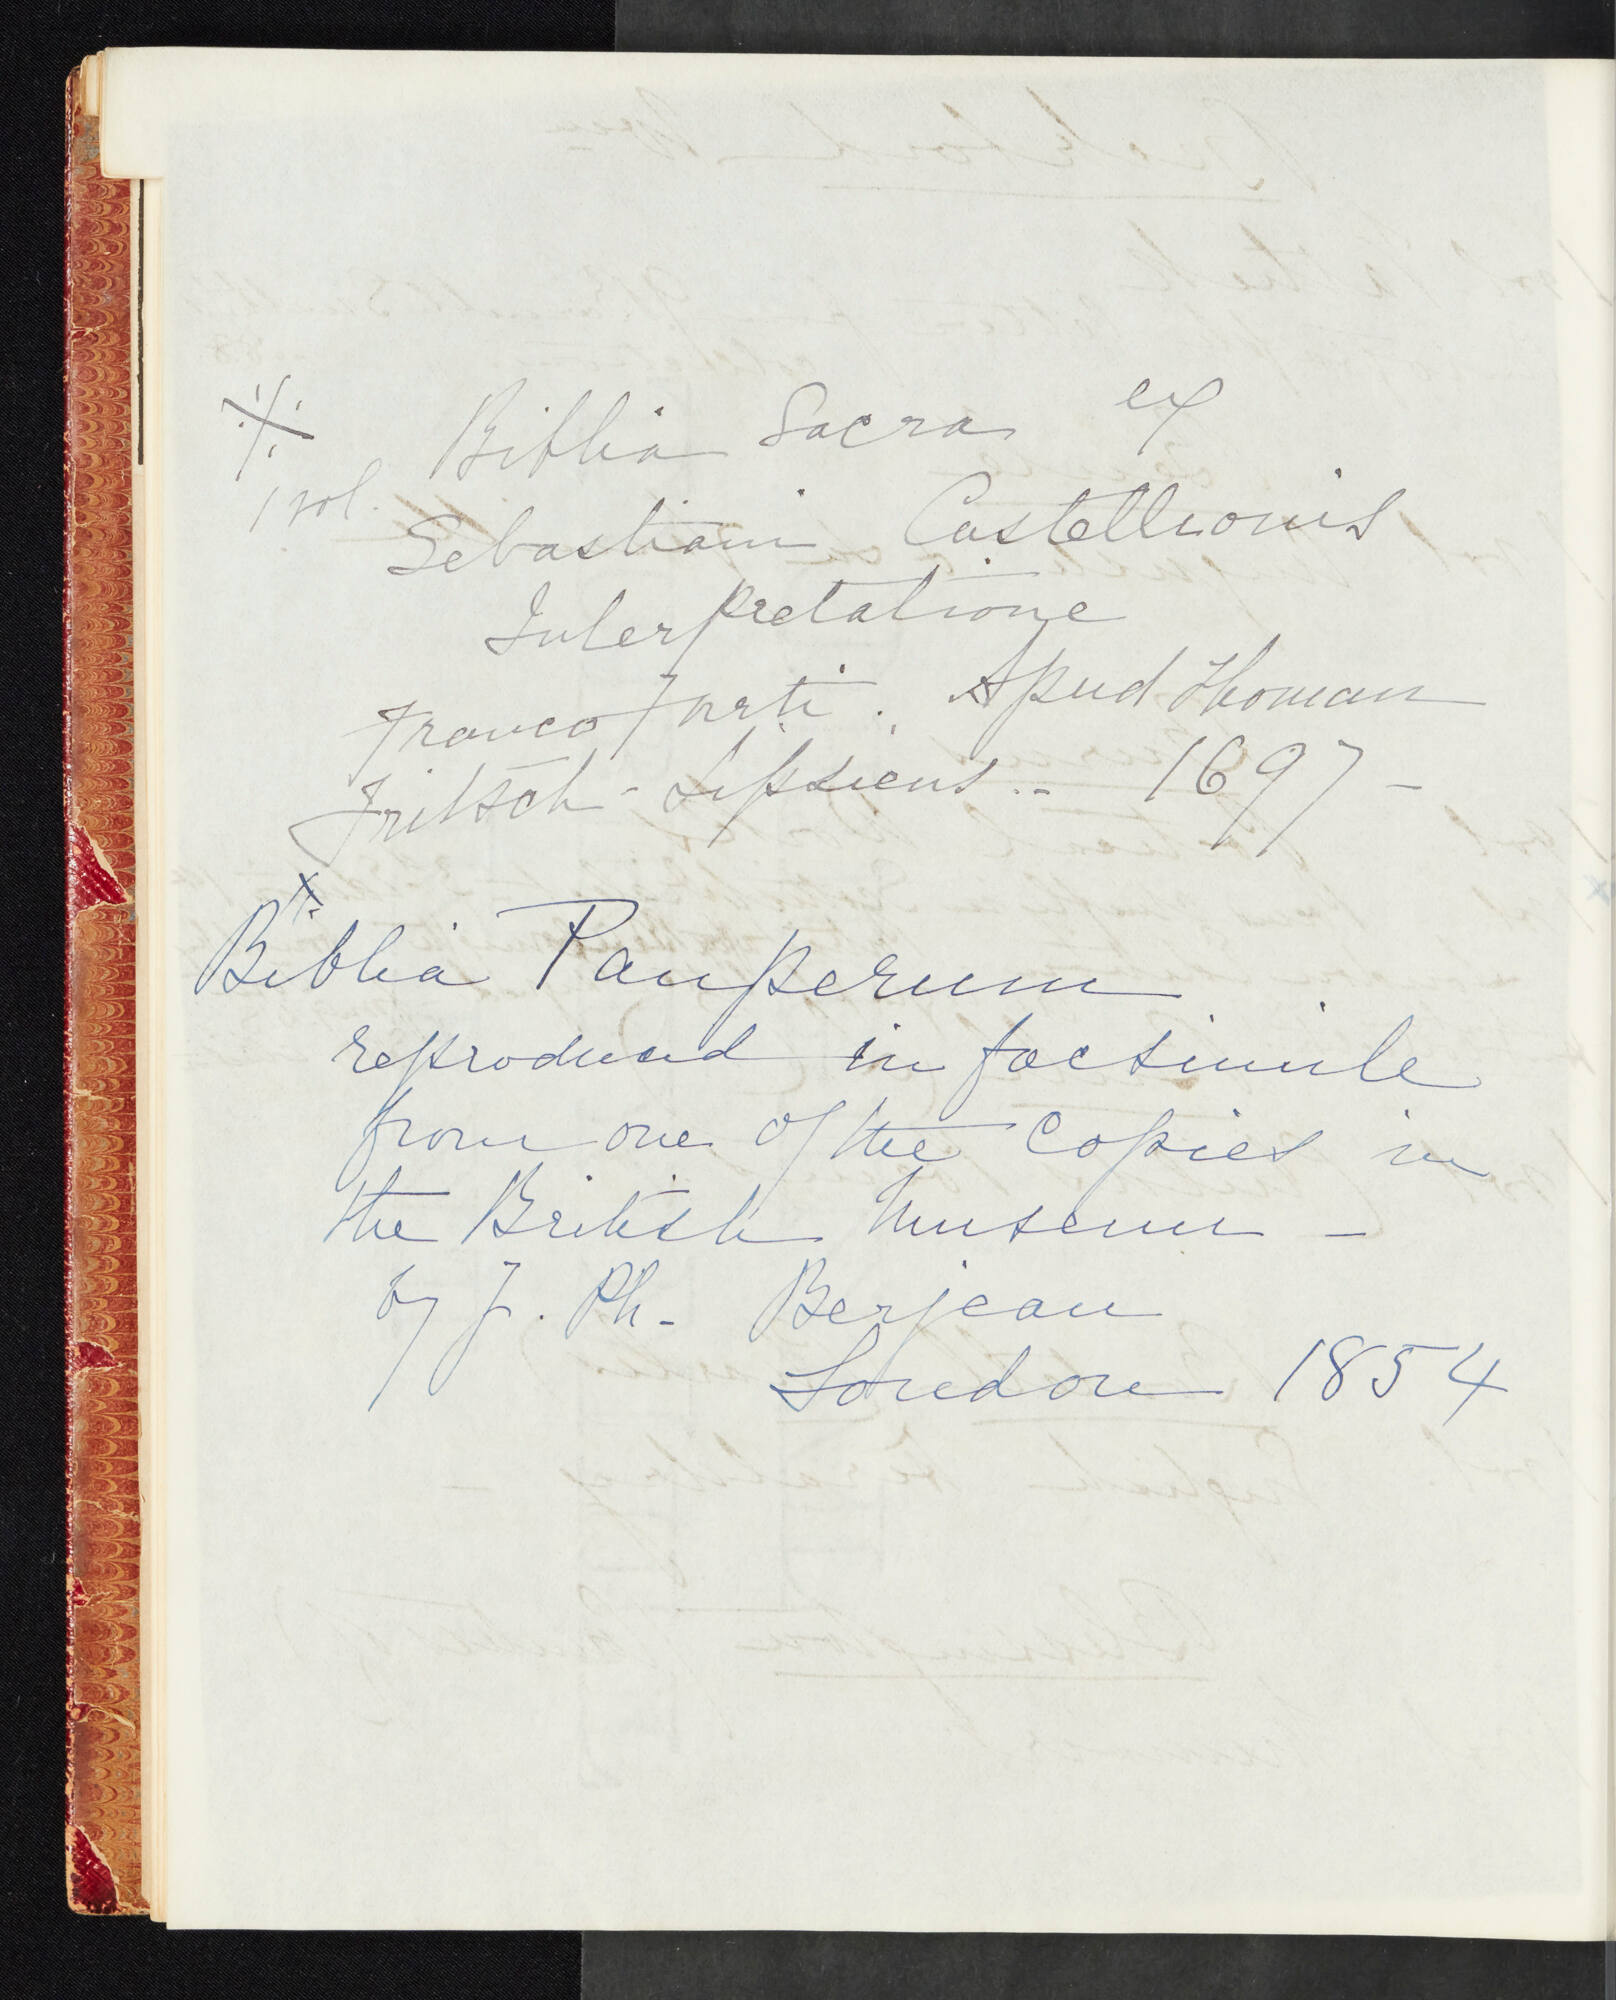 Biblia Sacra ex
1 vol.
Sebastiani Castellionis
Interpretatione
Francoforti. Apud Thoman
Fritsch - Lipsiens.. 1697 -
Biblia Pauperum
reproduced in facsimile
from one of the Copies in
the British Museum -
by J. Ph. Berjeau
London 1854